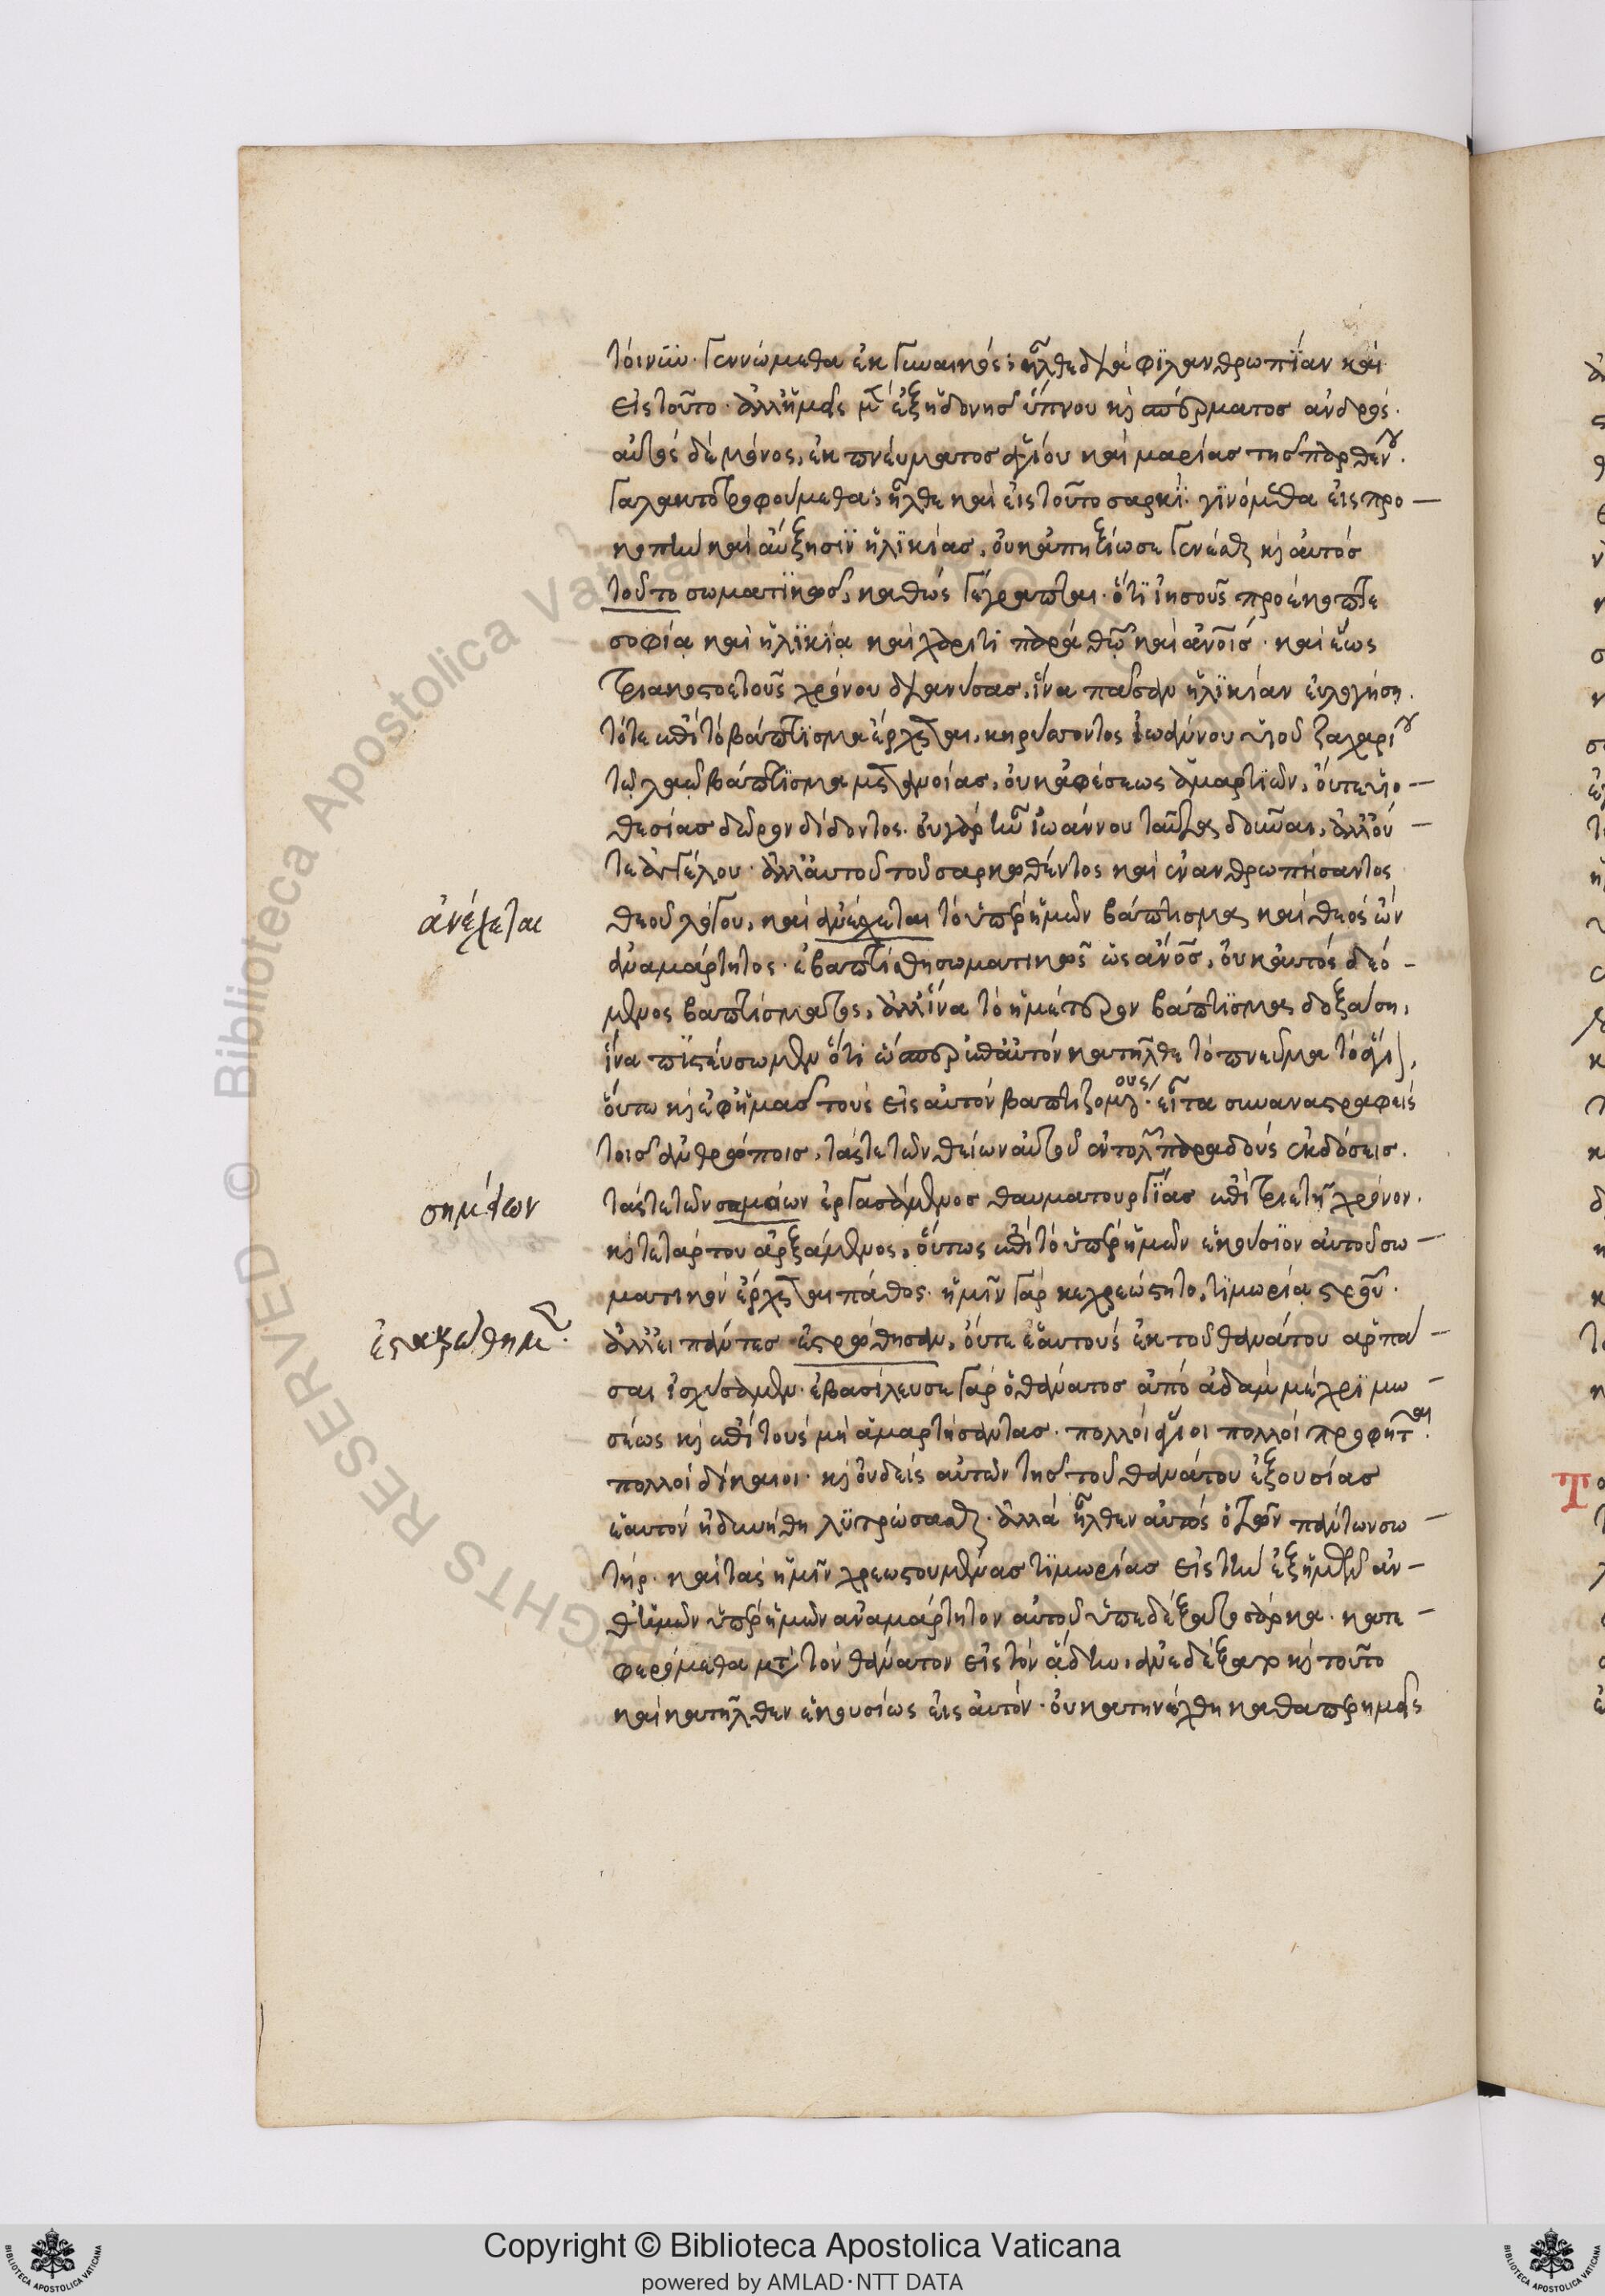 τόινῦν. Γεννώμεθα ἐκ Γυναικός; ἦλθε διὰ φϊλανθρωπΐαν καὶ
εἰς τοῦτο. ἀλλ' ἡμᾶς μὲν ἐξ ἡδονῆσ ὕπνου καὶ σπέρματοσ ἀνδρός.
αὐτός δέ μόνος, ἐκ πνέυματοσ ἁγίου καὶ μαρίασ τῆσ παρθένου.
Γαλακτοτροφούμεθα; ἦλθε καὶ εἰς τοῦτο σαρκΐ. γϊνόμεθα εἰς προ –
κοπὴν καὶ ἄυξησϊν ἡλϊκίας, οὐκ ἀπηξίωσε Γενέσθαι καὶ ἀυτός
τοῦτο σωματϊκῶσ, καθώς Γέγραπται. ὅτϊ ἰησοῦς προέκοπτε
σοφίᾳ καὶ ἡλϊκίᾳ καὶ χάριτι παρά θῶ καὶ ἀνοῖσ. καὶ ἕως
τριακοστοῦ ἔτους χρόνου διανύσας, ἵνα πᾶσαν ἡλϊκίαν ἐυλογήσῃ.
τότε ἐπὶ τὸ βάπτϊσμα ἔρχεται, κηρύττοντος ἰωάννου υἱοῦ ζαχαρίου
τῷ λαῷ βάπτϊσμα μετανοίασ, οὐκ ἀφέσεως ἁμαρτϊῶν, ὄυτε υἱο –
θεσίασ δῶρον δίδοντος. οὐ γὰρ τὴν ἰωάννου ταῦτα δοκῶσαι, ἀλλ' ὄυ –
τε ἀγγέλου. ἀλλ' ἀυτοῦ τοῦ σαρκωθέντος καὶ ἐνανθρωπήσαντος
ἀνέχεται
θεοῦ λόγου, καὶ ἀνέχεται τὸ ὑπέρ ἡμῶν βάπτισμα καὶ θεός ὤν
ἀναμάρτητος. ἐβαπτίσθη σωματικῶς ὡς ἄνος, οὐκ ἀυτός δεό –
μενος βαπτίσματος, ἀλλ' ἵνα τὸ ἡμέτερον βάπτϊσμα δοξάσῃ,
ἵνα πϊστεύσωμεν ὅτι ὥσπερ ἐπ' ἀυτόν κατῆλθε τό πνεῦμα τό ἅγιον,
ὅυτω καὶ ἐφ' ἡμᾶσ τούς εἰς αὐτόν βαπτιζομένους. εἶτα συναναστραφείς
τοῖσ ἀνθρώποισ, τάς τε τῶν θείων αὐτοῦ ἐντολῶν παραδούς ἐκδόσεισ.
σημείων
τάς τε τῶν σαμείων ἐργασάμενος θαυματουργΐασ ἐπὶ τριετῆ χρόνον.
καὶ τετάρτου ἀρξάμενος, ὅυτως ἐπὶ τὸ ὑπέρ ἡμῶν ἑκούσϊον ἀυτοῦ σω –
ματικόν ἔρχεται πάθος. ἡμῖν Γάρ κεχρεώστητο, τϊμωρία σταυροῦ.
ἐσταυρώθημεν.
ἀλλ' εἰ πάντεσ ἐστρώθησαν, ὄυτε ἑαυτούς ἐκ τοῦ θανάτου ἁρπά –
σαι ἰσχύσαμεν. ἐβασίλευσε Γάρ ὁ θάνατος ἀπό ἀδαμ μέχρϊ μω –
σέως καὶ ἐπὶ τούς μή ἁμαρτήσαντασ. πολλοί ἅγιοι πολλοί προφῆται.
πολλοί δίκαιοι. καὶ ὀυδείς αὐτῶν τῆσ τοῦ θανάτου ἐξουσίασ
ἑαυτόν ἠδυνήθη λϋτρώσασθαι. ἀλλά ἦλθεν αὐτός ὁ τῶν πάντων σω –
τήρ. καὶ τάς ἡμῖν χρεωστουμένασ τϊμωρίασ εἰς τὴν ἐξ ἡμῶν ἀν –
θ' ἡμῶν ὑπέρ ἡμῶν ἀναμάρτητον αὐτοῦ ὑπεδέξατο σάρκα. κατε –
φερόμεθα μετὰ τόν θάνατον εἰς τόν ᾅδην, ἀνεδέξατο καὶ τοῦτο
καὶ κατῆλθεν ἑκουσίως εἰς ἀυτόν. οὐ κατηνέχθη καθάπερ ἡμεῖς